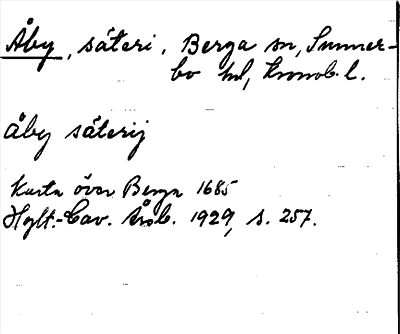 Åby, säteri, Berga sn, Sunner-
bo hd, Kronob. l.
Åby säterij
Karta över Berga 1685
Hylt.-Cav. Årsb. 1929, s. 257.